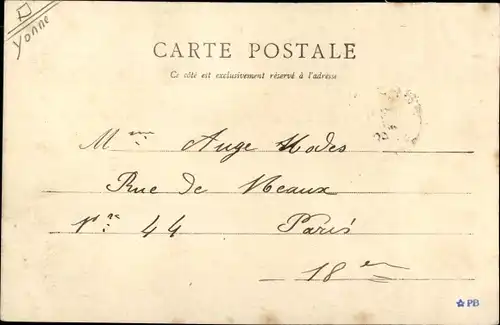 Yonne
CARTE POSTALE
Ce côté est exclusivement réservé à l'adresse
Mme Auge Modes
Rue de Meaux
No: 44 Paris
18em
PB